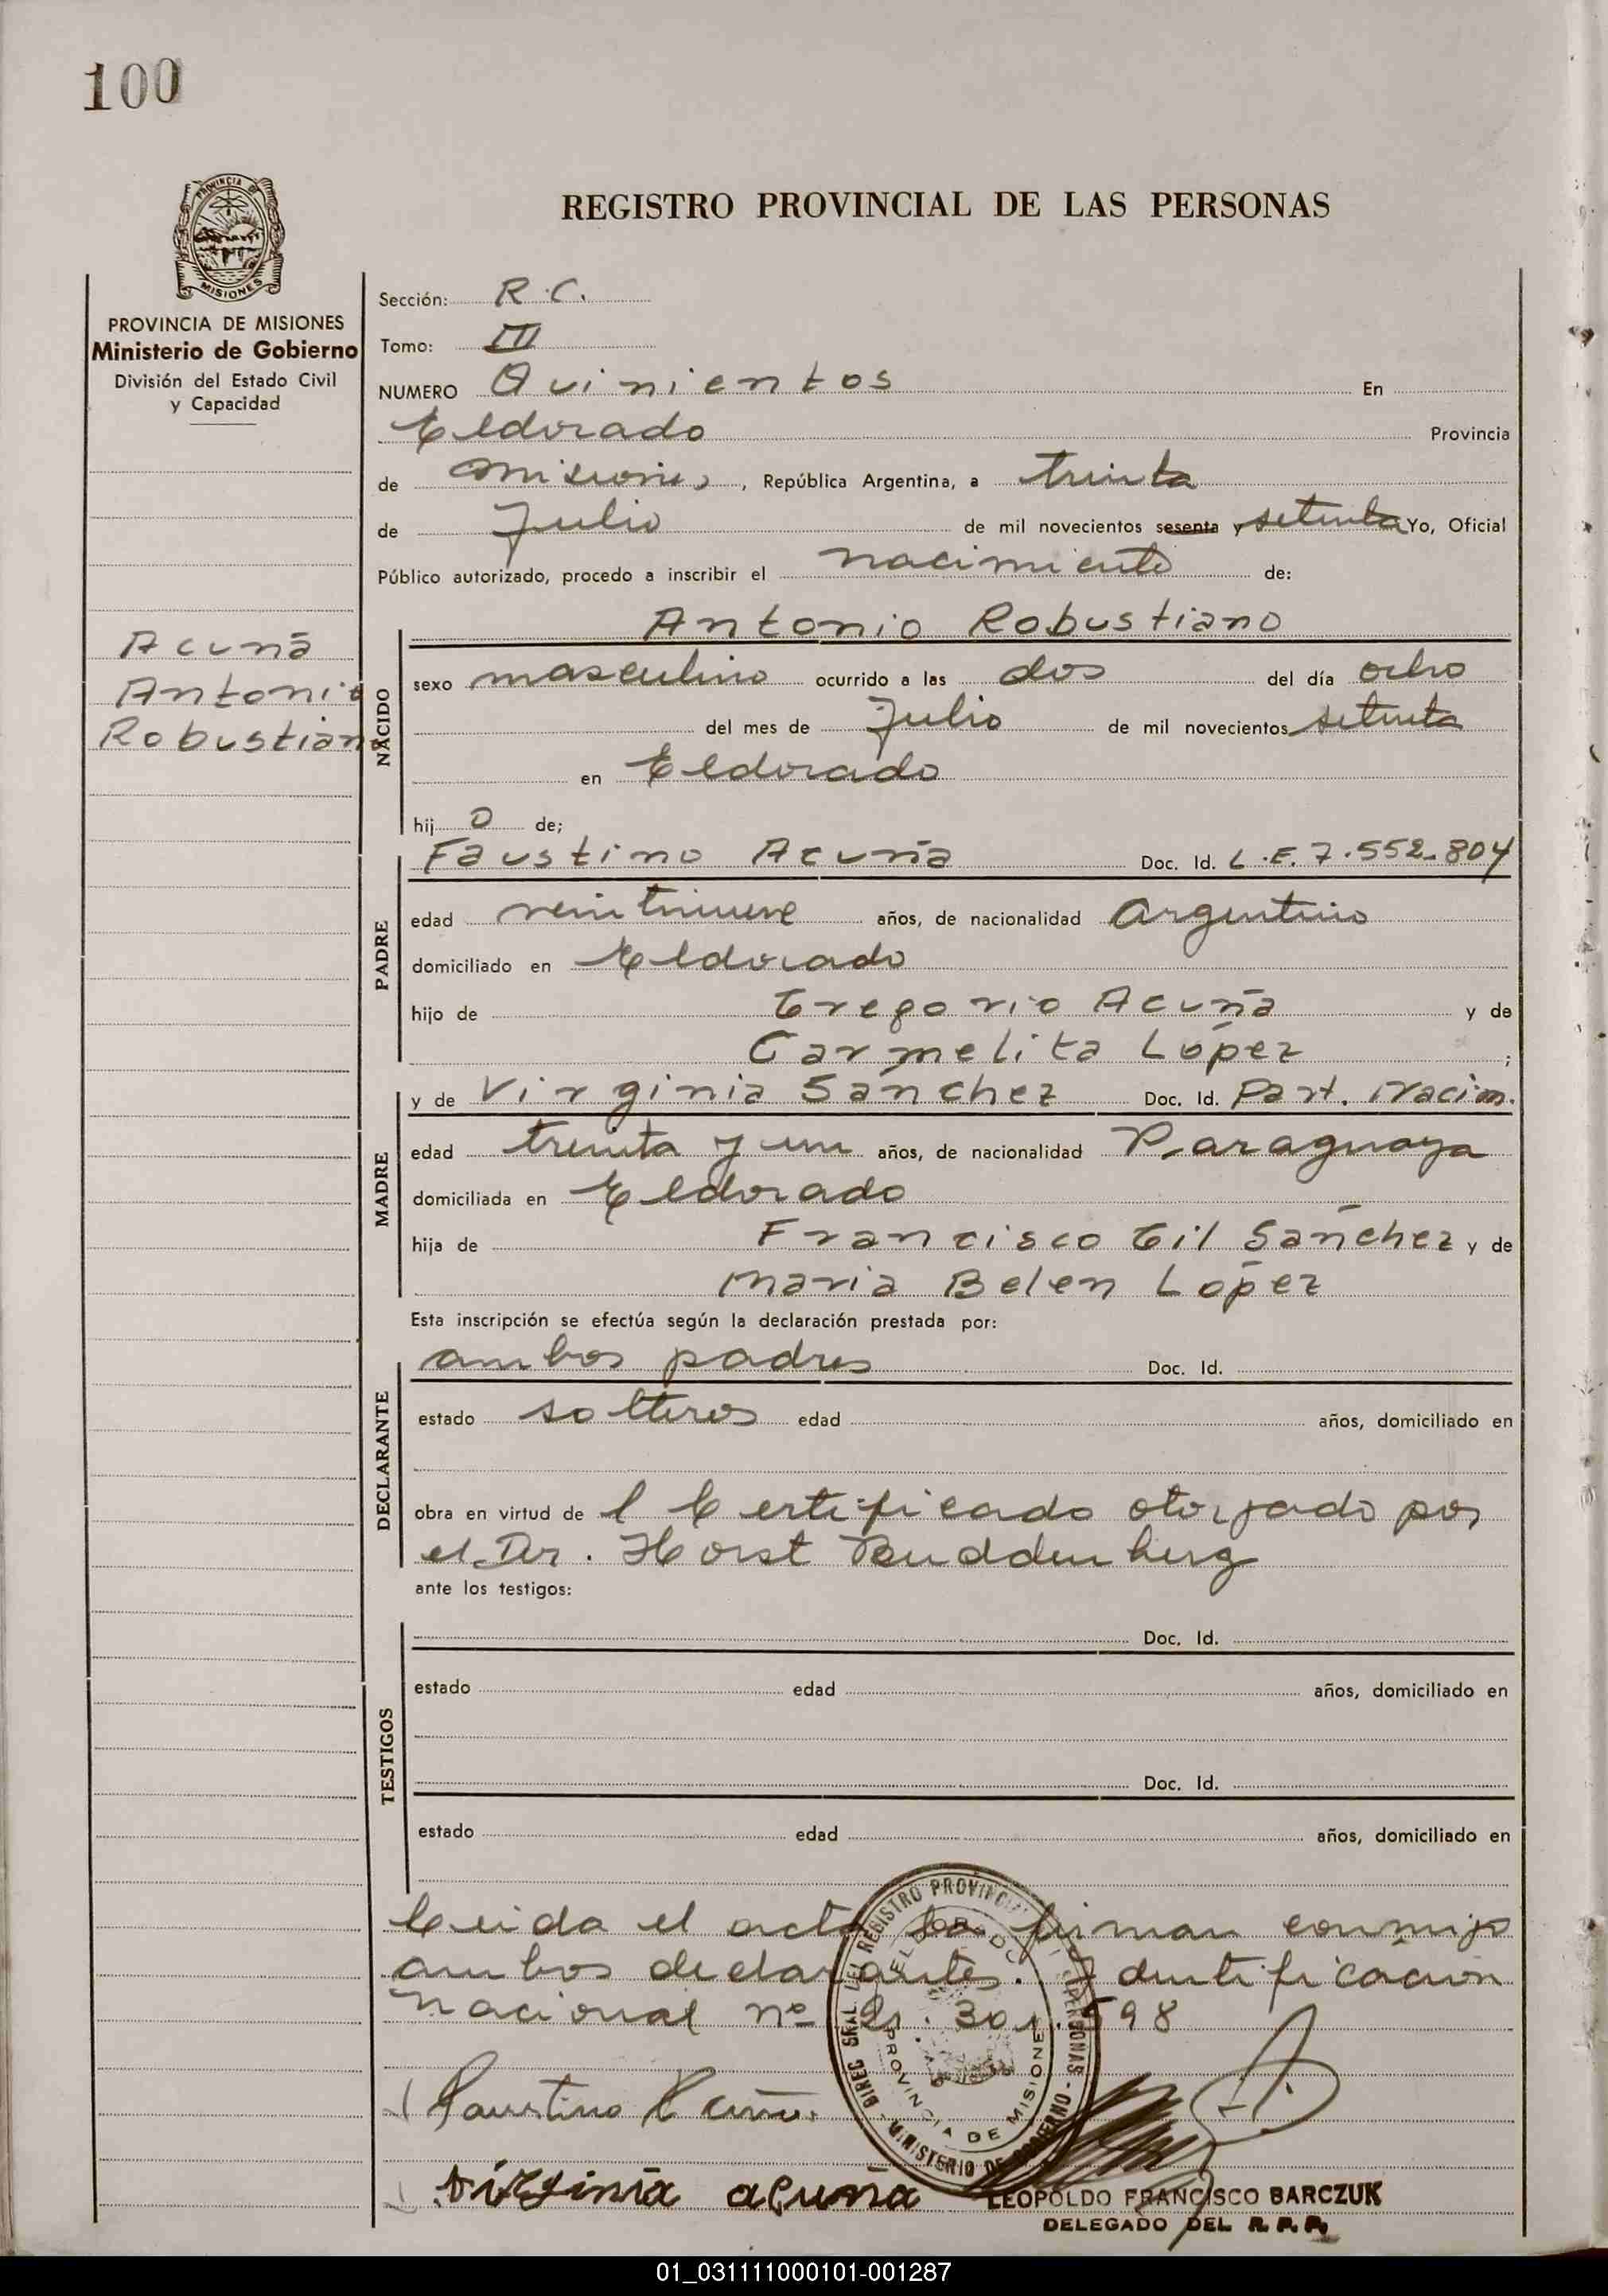 100
PROVINCIA DE
MISIONES
PROVINCIA DE MISIONES
Ministerio de Gobierno
División del Estado Civil
y Capacidad
REGISTRO PROVINCIAL DE LAS PERSONAS
Sección: R.C.
Tomo: III
NUMERO Quinientos En
Eldorado Provincia
de Misiones, República Argentina, a treinta
de Julio de mil novecientos sesenta y setenta Yo, Oficial
Público autorizado, procedo a inscribir el nacimiento de:
Acuña
Antonio
Robustiano
NACIDO
Antonio Robustiano
sexo masculino ocurrido a las dos del día ocho
del mes de Julio de mil novecientos setenta
en Eldorado
hij o de;
PADRE
Faustino Acuña Doc. Id. L.E.7.552.804
edad veintinueve años, de nacionalidad Argentino
domiciliado en Eldorado
hijo de Gregorio Acuña y de
Carmelita López ;
MADRE
y de Virginia Sánchez Doc. Id. Part. Nacim.
edad treinta y un años, de nacionalidad Paraguaya
domiciliada en Eldorado
hija de Francisco Gil Sánchez y de
Maria Belen López
Esta inscripción se efectúa según la declaración prestada por:
DECLARANTE
ambos padres Doc. Id.
estado solteros edad años, domiciliado en
obra en virtud de l Certificado otorgado por
el Dr. Horst Buddenberg
ante los testigos:
TESTIGOS
Doc. Id.
estado edad años, domiciliado en
Doc. Id.
estado edad años, domiciliado en
Leida el acta la firman conmigo
ambos declarantes. Identificación
nacional nº 21.301.598
Faustino Acuña
Virginia acuña
DIREC. GRAL. DEL REGISTRO PROVINCIAL DE LAS PERSONAS - MINISTERIO DE GOBIERNO -
ELDORADO
PROVINCIA DE MISIONES
LEOPOLDO FRANCISCO BARCZUK
DELEGADO DEL R. P. P.
01_031111000101-001287